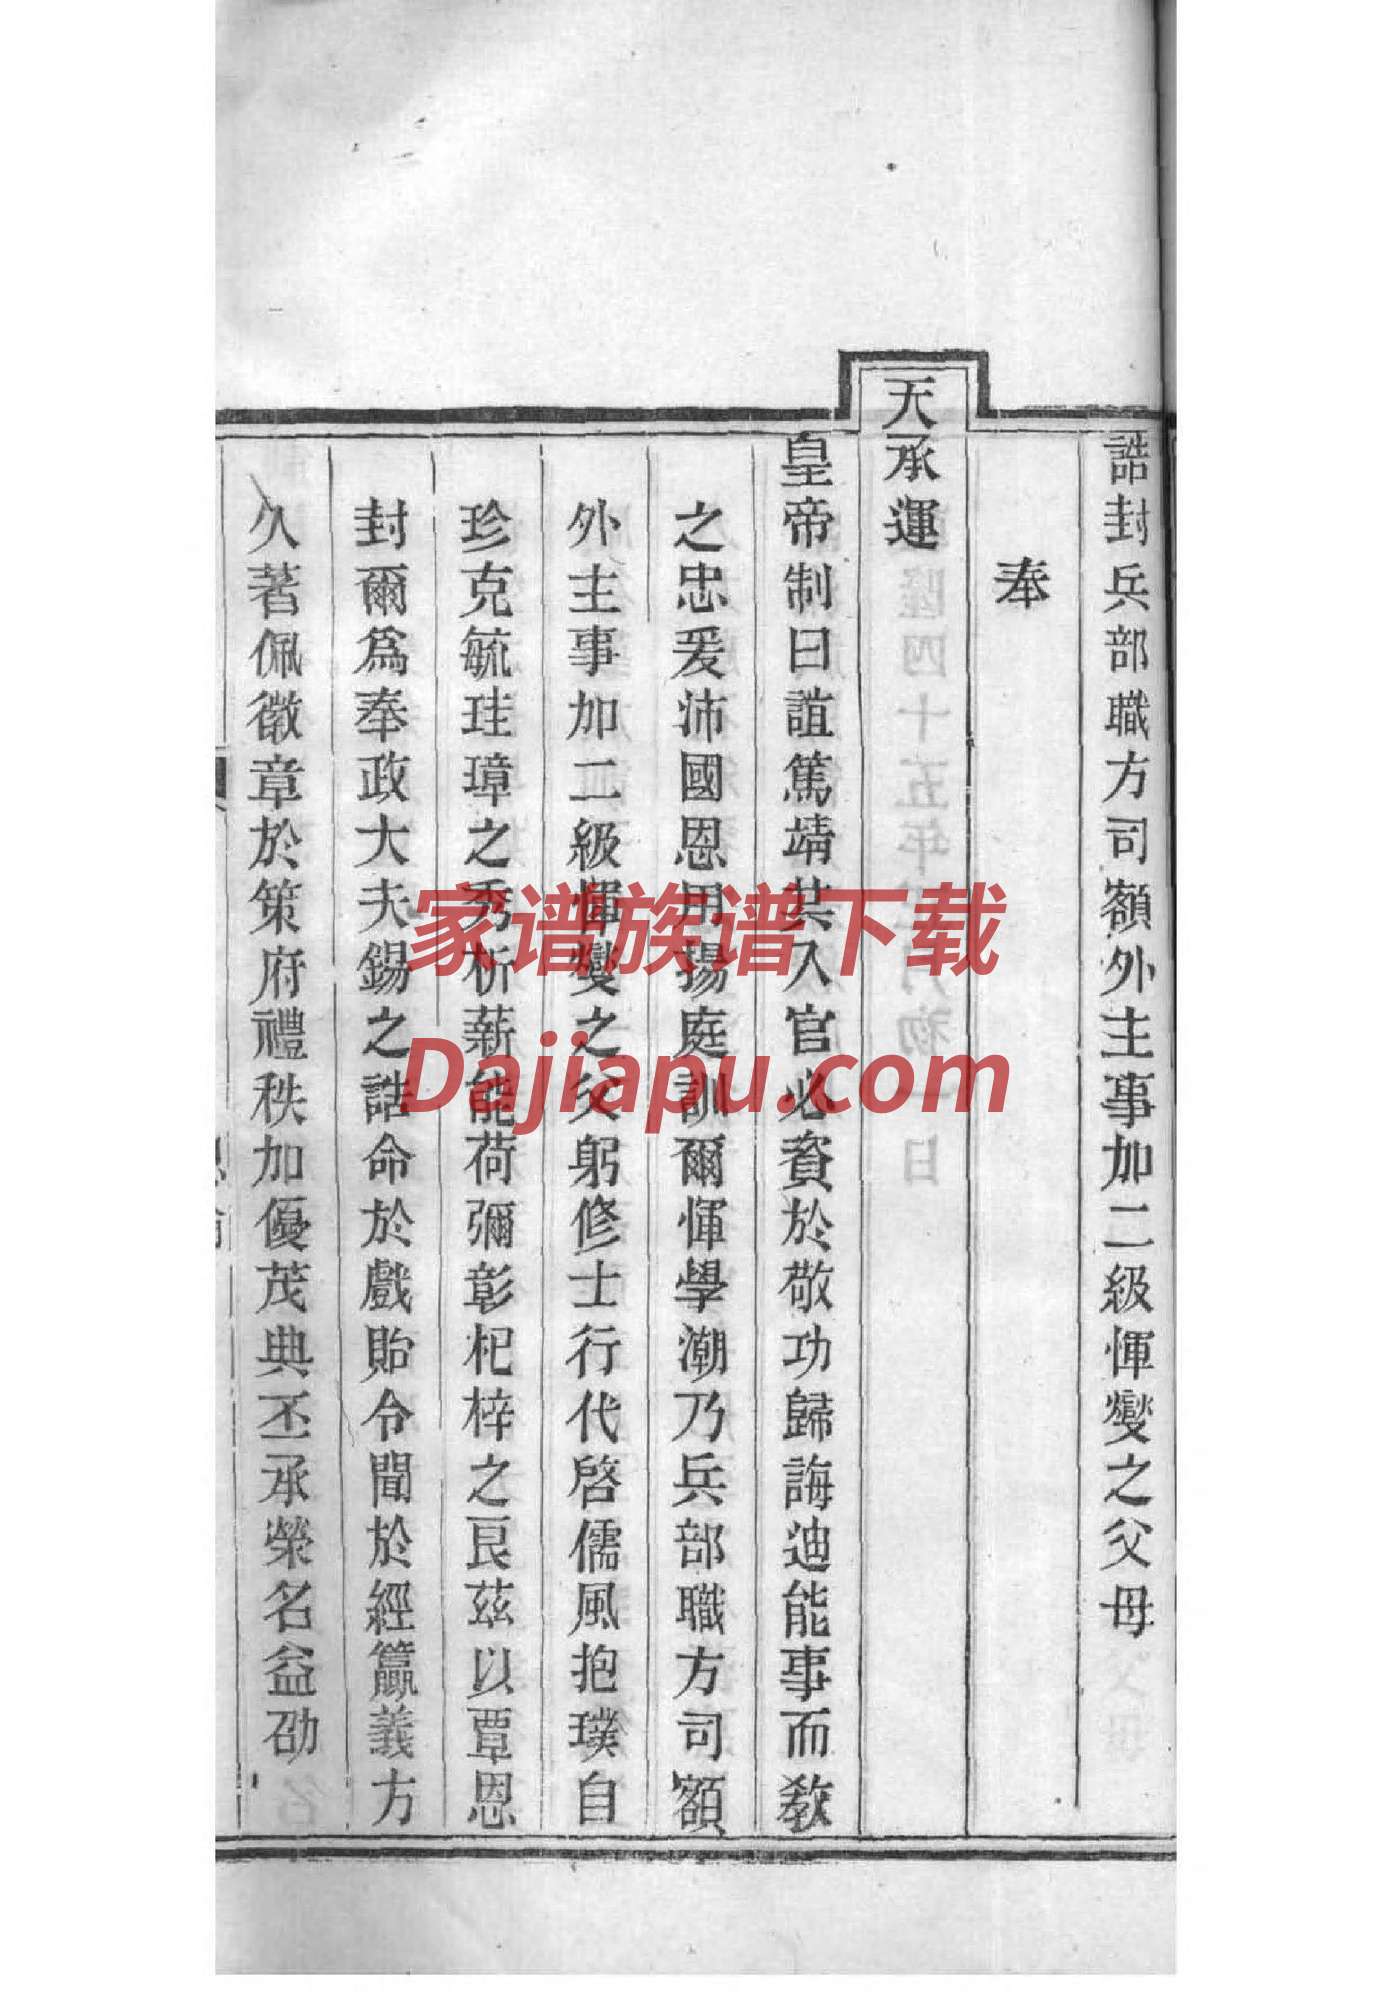 誥封兵部職方司額外主事加二級惲燮之父母
奉
天承運
皇帝制曰誼篤靖共入官必資於敬功歸誨迪能事而教
之忠爰沛國恩用揚庭訓爾惲學潮乃兵部職方司額
外主事加二級惲燮之父躬修士行代啓儒風抱璞自
珍克毓珪璋之秀析薪能荷彌彰杞梓之良茲以覃恩
封爾爲奉政大夫錫之誥命於戲貽令聞於經籯義方
久著佩徽章於策府禮秩加優茂典丕承榮名益劭
家谱族谱下载
Dajiapu.com